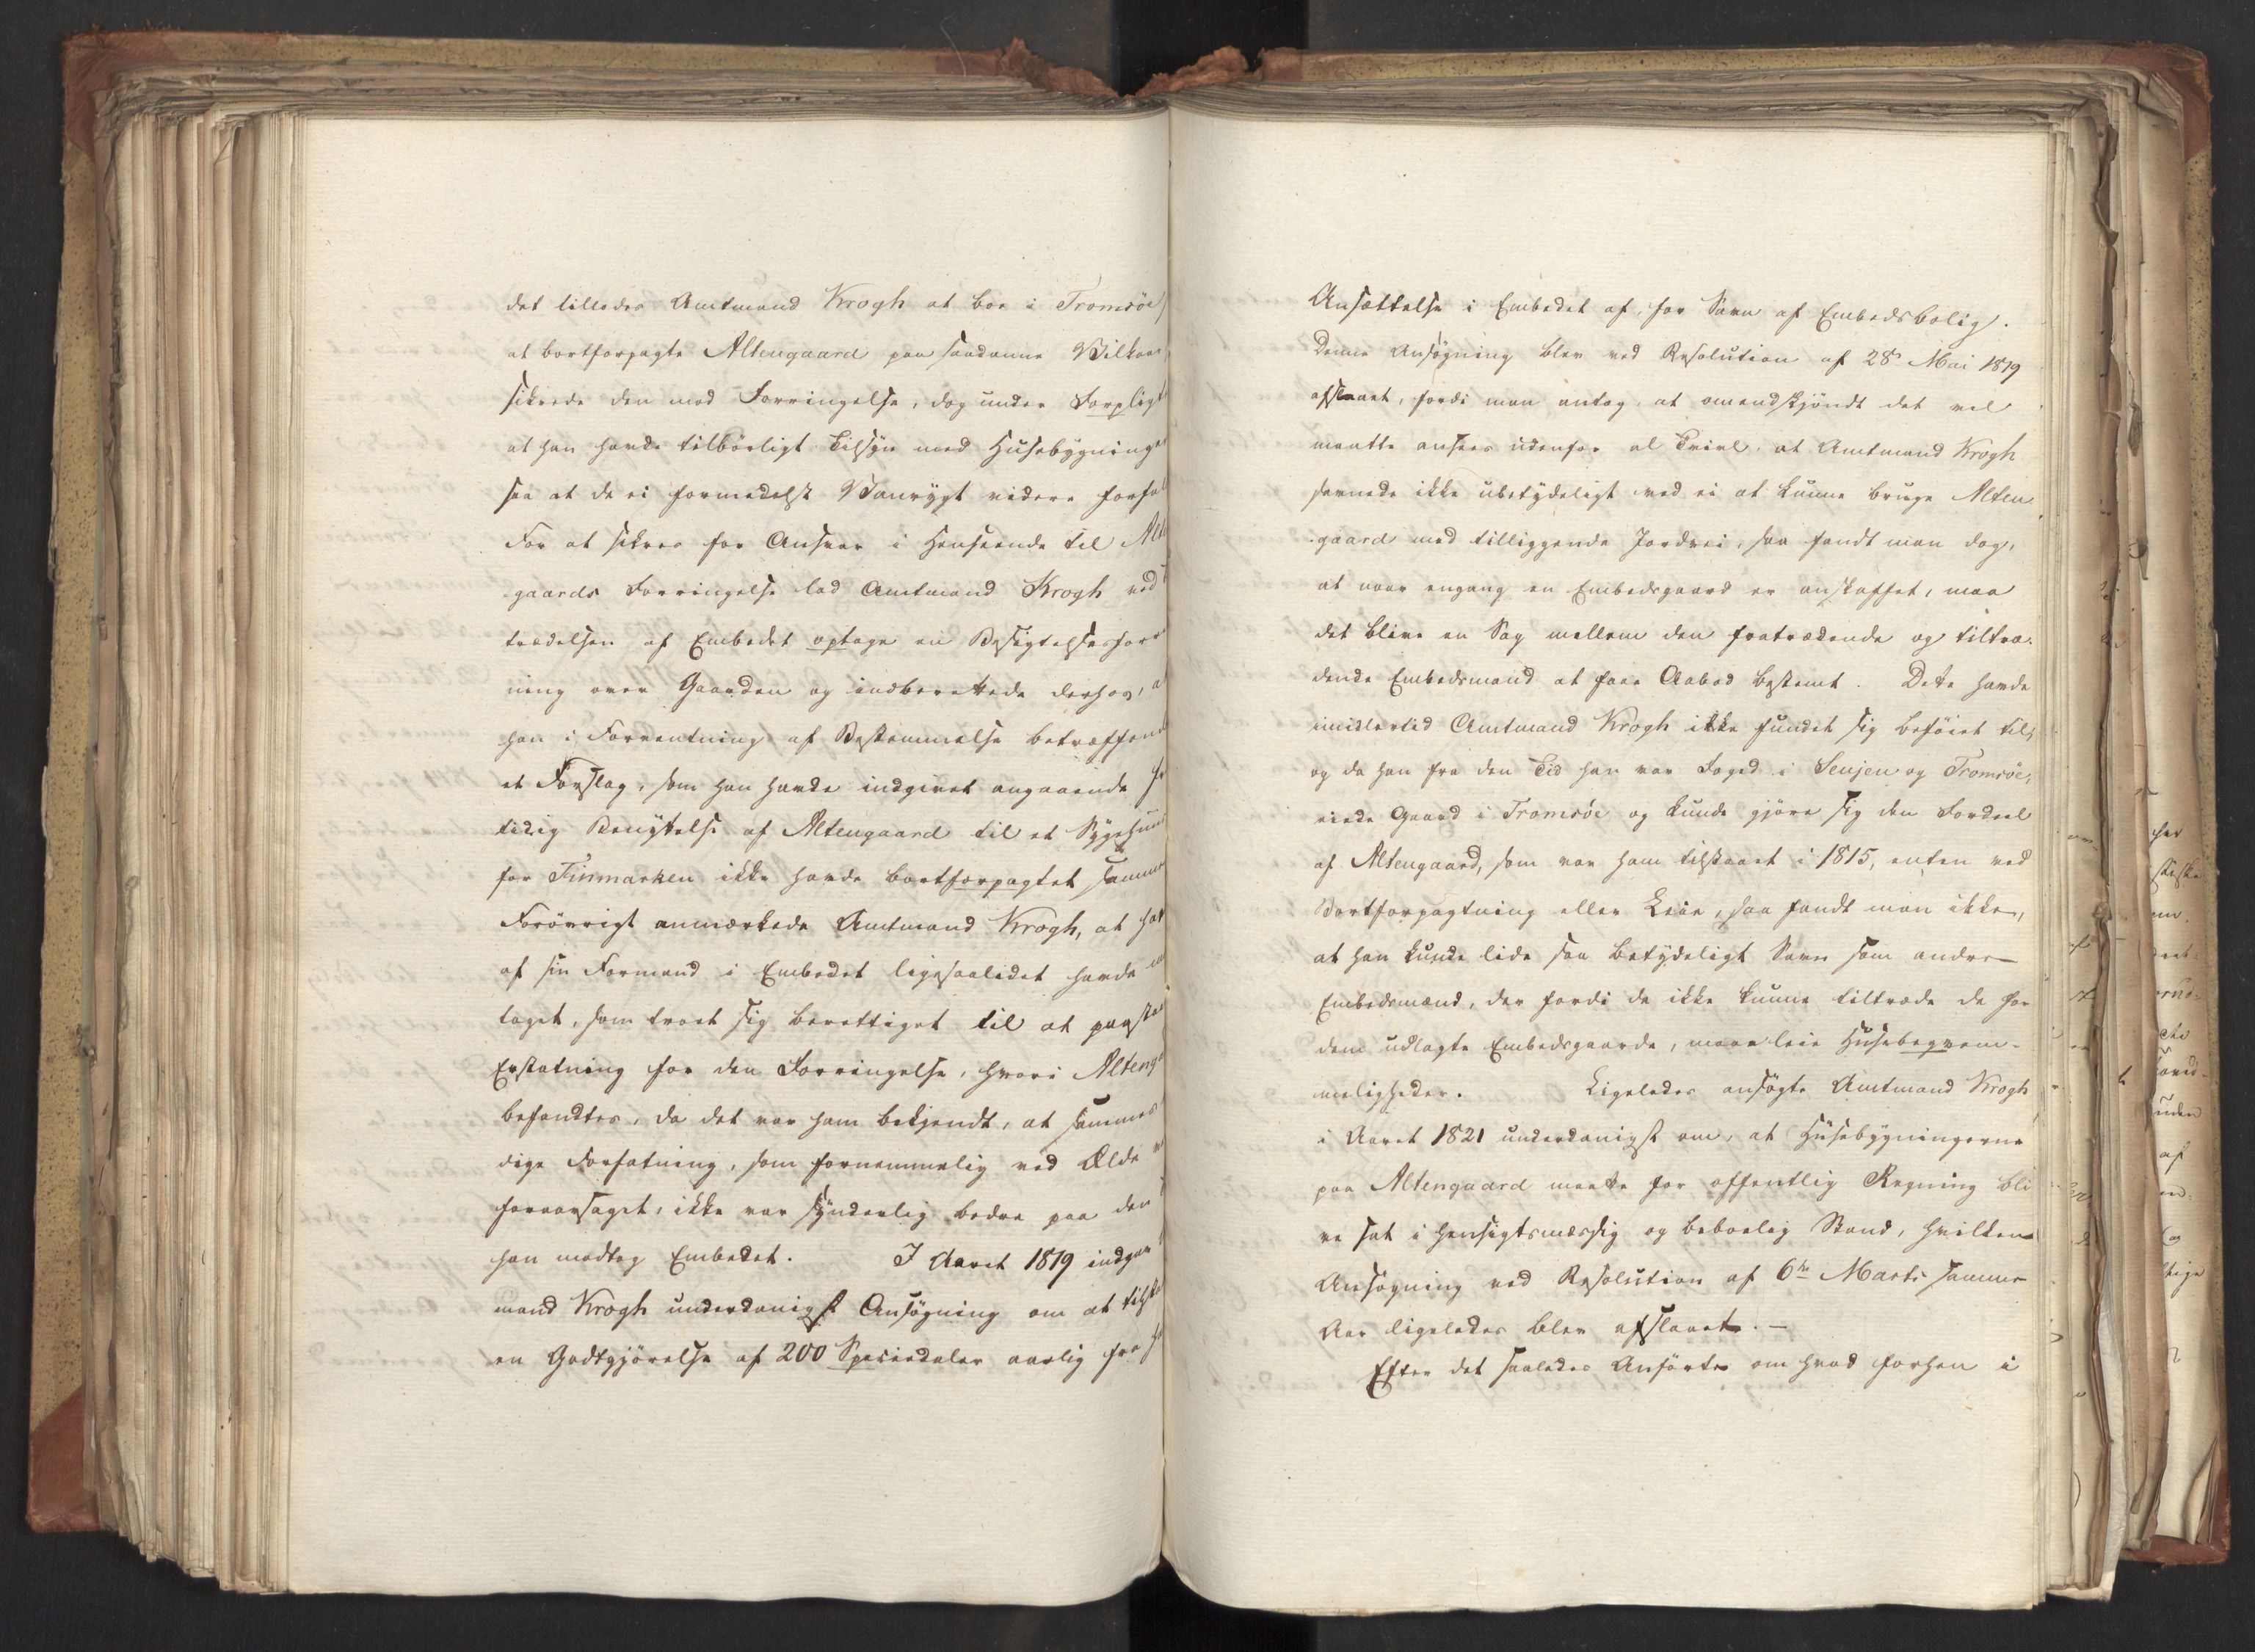 det tillodes Amtmand Krogh at boe i Tromsöe
at bortforpagte Altengaard paa saadanne Vilkaar,
sikrede den mod Forringelse, dog under Forpligt
at han havde tilbörligt Tilsyn med Husebygninge
saa at de ei formedelst Vanrygt videre forfal
For at sikres for Ansvar i Henseende til Alt
gaards Forringelse lod Amtmand Krogh ved
trædelsen af Embedet optage en Besigtelsesforr
ning over Gaarden og indberettede derhos, a
han i Forventning af Bestemmelse betræffend
et Forslag, som han havde indgivet angaaende fr
tidig Benyttelse af Altengaard til et Sygehuus
for Finmarken ikke havde bortforpagtet samme
Forövrigt anmærkede Amtmand Krogh, at hat
af sin Formand i Embedet ligesaalidet havde
taget, som troet sig berettiget til at paastaa
Erstatning for den Forringelse, hvori Alteng
befandtes, da det var ham bekjendt, at sammes
dige Forfatning, som fornemmelig ved Ælde
foraarsaget, ikke var synderlig bedre paa den
han modtog Embedet. I Aaret 1819 indgav
mand Krogh underdanigst Ansögning om at tilst
en Godtgjörelse af 200 Speciedaler aarlig fra h
Ansættelse i Embedet af, for Savn af Embedsbolig.
Denne Ansögning blev ved Resolution af 28de Mai 1819
afslaaet, fordi man antog, at omendskjöndt det vel
maatte ansees udenfor al Tvivl, at Amtmand Krogh
savnede ikke ubetydeligt ved ei at kunne bruge Alten
gaard med tilliggende Jordvei, saa fandt man dog,
at naar engang en Embedsgaard er anskaffet, maa
det blive en Sag mellem den fratrædende og tiltræ-
dende Embedsmand at faae Aabod bestemt. Dette havde
imidlertid Amtmand Krogh ikke fundet sig beföiet til,
og da han fra den Tid han var Foged i Senjen og Tromsöe,
eiede Gaard i Tromsöe og kunde gjöre sig den Fordeel
af Altengaard, som var ham tilstaaet i 1815, enten ved
Bortforpagtning eller Leie, saa fandt man ikke,
at han kunde lide saa betydeligt Savn som andre
Embedsmænd, der fordi de ikke kunne tiltræde de for
dem udlagte Embedsgaarde, maae leie Husebeqvem-
meligheder. Ligeledes ansögte Amtmand Krogh
i Aaret 1821 underdanigst om, at Husebygningerne
paa Altengaard maatte for offentlig Regning bli
ve sat i hensigtsmæssig og beboelig Stand, hvilken
Ansögning ved Resolution af 6te Marts samme
Aar ligeledes blev afslaaet. —
Efter det saaledes Anförte om hvad forhen i